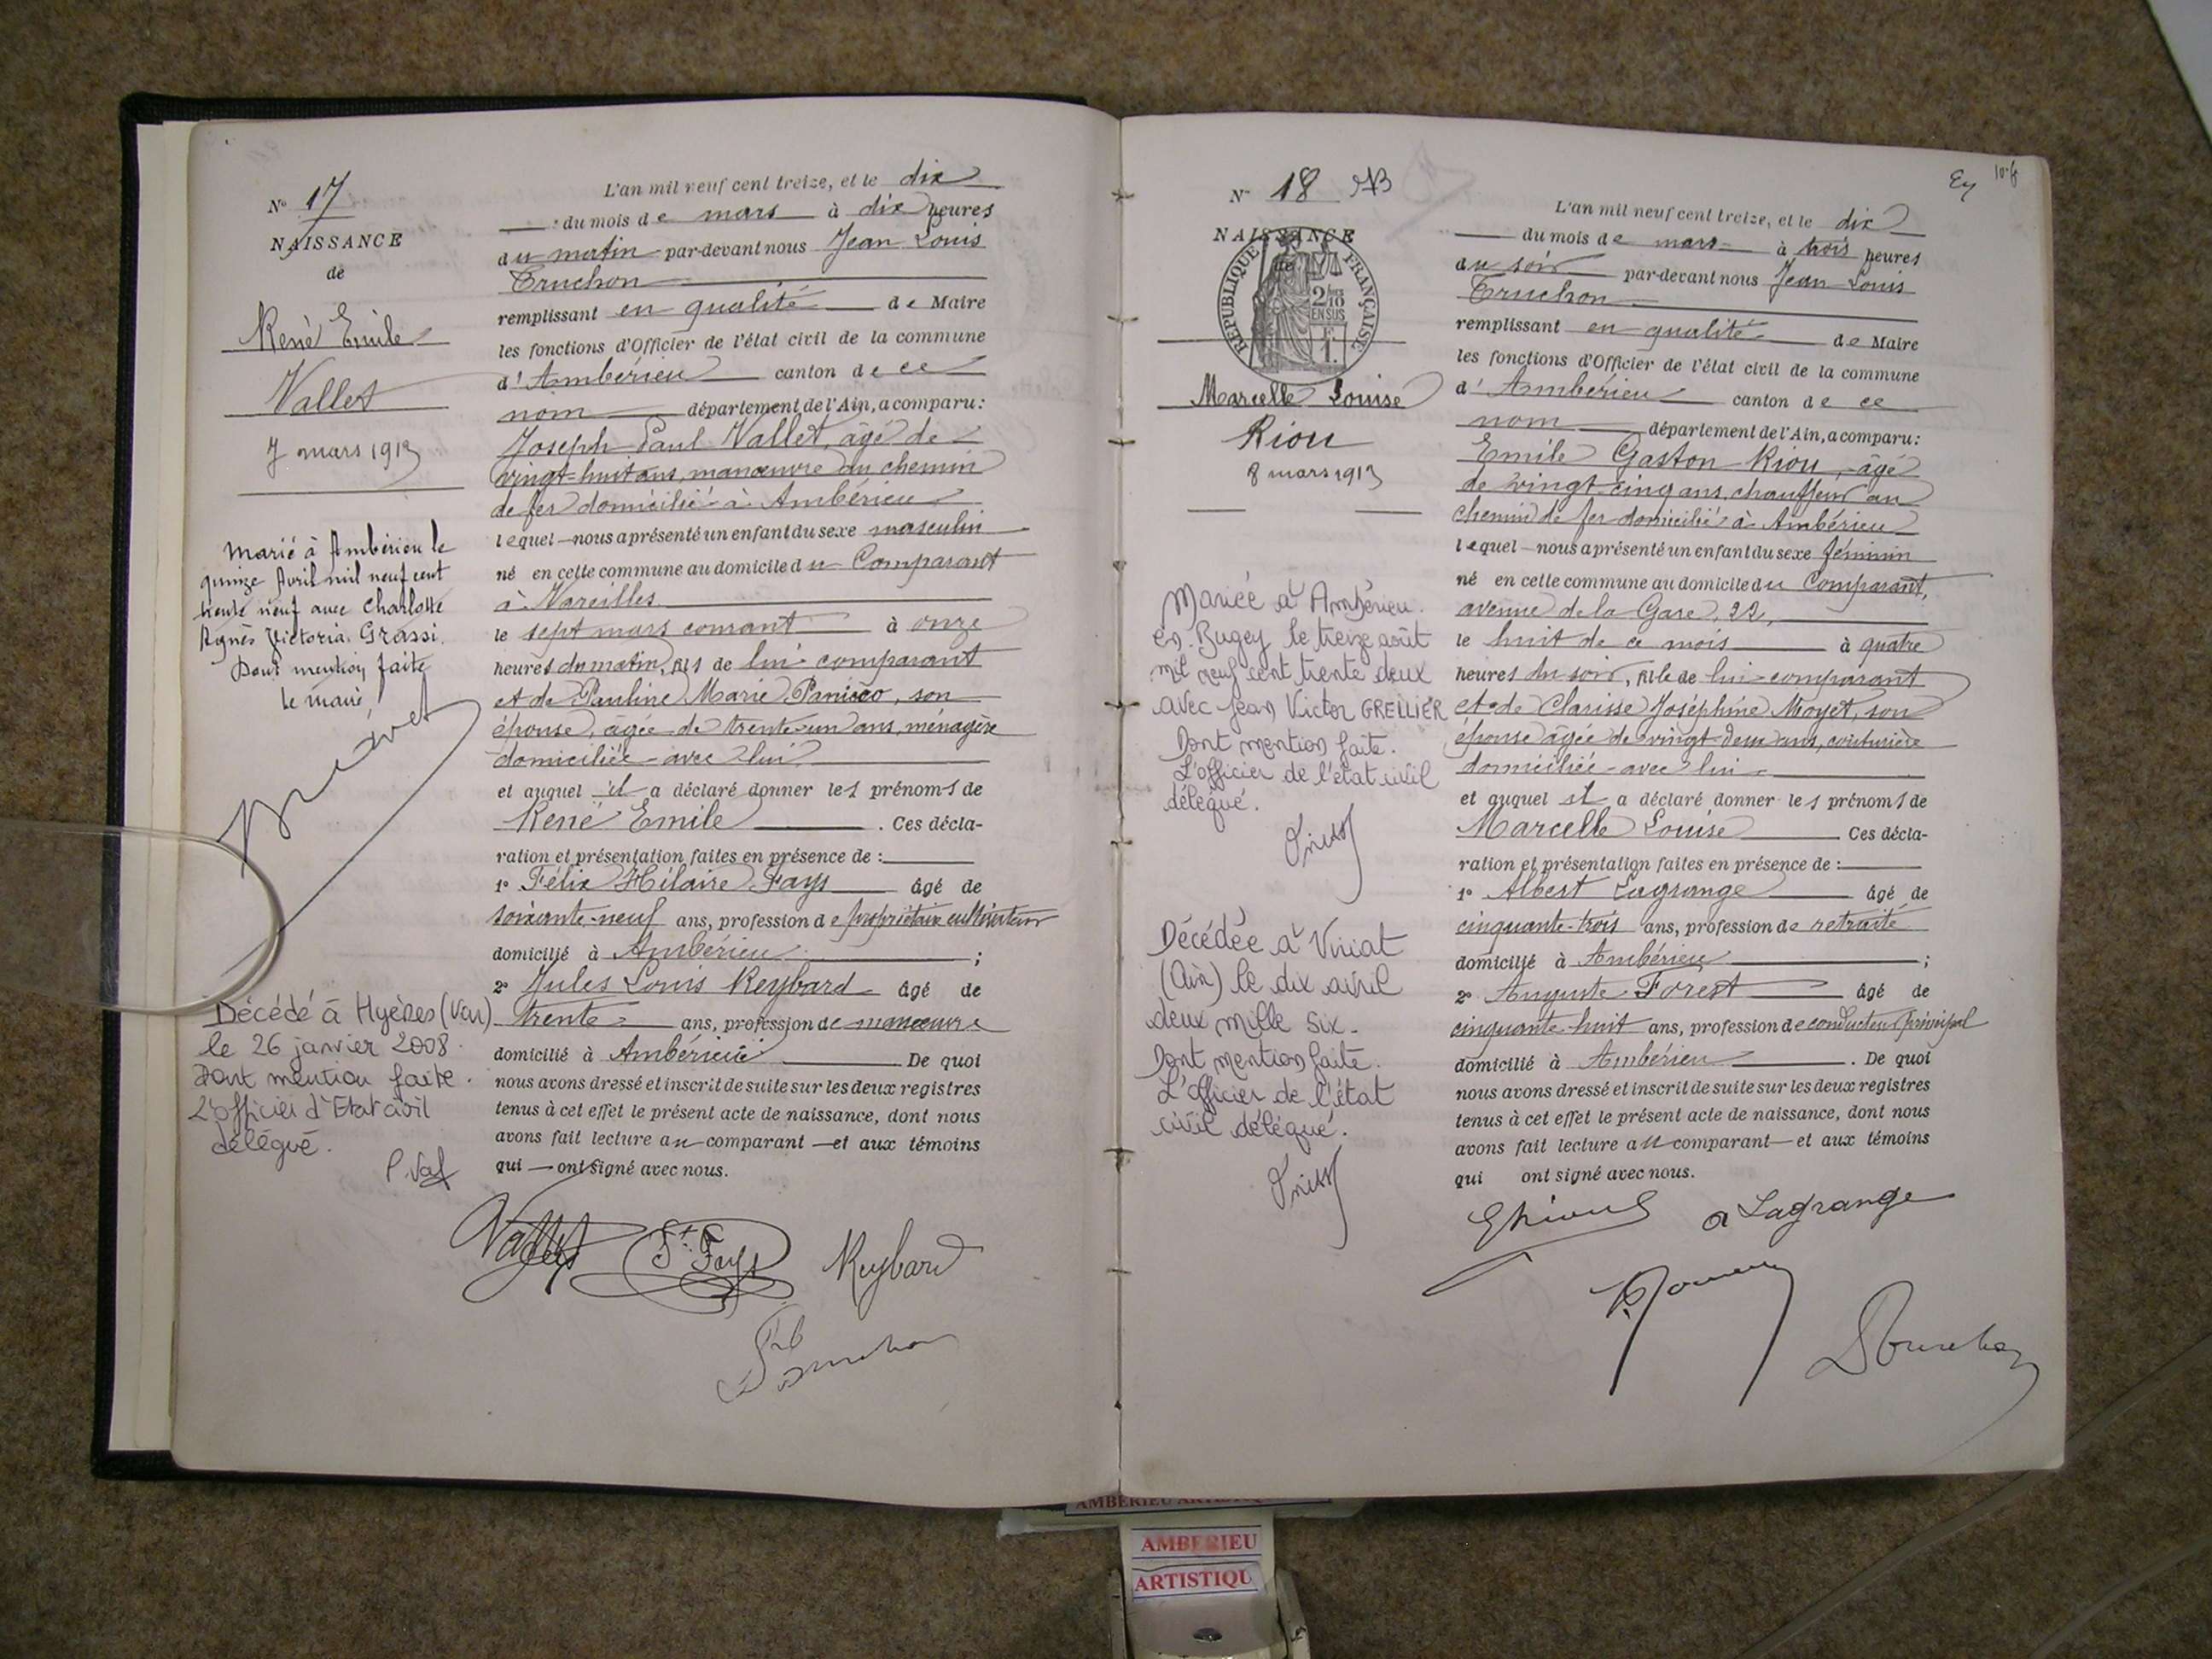 N° 17
NAISSANCE
de
René Emile
Vallet
7 mars 1913
Marié à Ambérieu le
quinze Avril mil neuf cent
trente neuf avec Charlotte
Agnès Victoria Grassi.
Dont mention faite
Le maire,
Décédé à Hyères (Var)
le 26 janvier 2008.
Dont mention faite.
L'officier d'Etat civil
délégué.
L'an mil neuf cent treize, et le dix
du mois de mars à dix heures
du matin par-devant nous Jean Louis
Truchon
remplissant en qualité de Maire
les fonctions d'Officier de l'état civil de la commune
d'Ambérieu canton de ce
nom département de l'Ain, a comparu:
Joseph Paul Vallet, âgé de
vingt-huit ans, manœuvre au chemin
de fer domicilié à Ambérieu
lequel nous a présenté un enfant du sexe masculin
né en cette commune au domicile du Comparant
à Vareilles
le sept mars courant à onze
heures du matin, fils de lui comparant
et de Pauline Marie, son
épouse, âgée de trente-un ans, ménagère
domiciliée avec lui
et auquel il a déclaré donner les prénoms de
René Emile . Ces décla-
ration et présentation faites en présence de :
1° Félix Hilaire Fays âgé de
soixante-neuf ans, profession de propriétaire cultivateur
domicilié à Ambérieu ;
2° Jules Louis Reybard âgé de
trente ans, profession de manœuvre
domicilié à Ambérieu De quoi
nous avons dressé et inscrit de suite sur les deux registres
tenus à cet effet le présent acte de naissance, dont nous
avons fait lecture au comparant et aux témoins
qui ont signé avec nous.
Vallet Fays Reybard
Truchon
N° 18
NAISSANCE
de
RÉPUBLIQUE FRANÇAISE
2/10
EN SUS
1 F.
Marcelle Louise
Riou
8 mars 1913
Mariée à Ambérieu
en Bugey le treize août
mil neuf cent trente deux
avec Jean Victor GRELLIER
Dont mention faite.
L'officier de l'état civil
délégué.
Décédée à Viriat
(Ain) le dix avril
deux mille six.
Dont mention faite.
L'officier de l'état
civil délégué.
L'an mil neuf cent treize, et le dix
du mois de mars à trois heures
du soir par-devant nous Jean Louis
Truchon
remplissant en qualité de Maire
les fonctions d'Officier de l'état civil de la commune
d'Ambérieu canton de ce
nom département de l'Ain, a comparu:
Emile Gaston Riou, âgé
de vingt-cinq ans, chauffeur au
chemin de fer domicilié à Ambérieu
lequel nous a présenté un enfant du sexe féminin
né en cette commune au domicile du Comparant,
avenue de la Gare, 22,
le huit de ce mois à quatre
heures du soir, fille de lui comparant
et de Clarisse Joséphine Moyet, son
épouse âgée de vingt-deux ans, couturière
domiciliée avec lui
et auquel il a déclaré donner les prénoms de
Marcelle Louise Ces décla-
ration et présentation faites en présence de :
1° Albert Lagrange âgé de
cinquante-trois ans, profession de retraité
domicilié à Ambérieu ;
2° Auguste Forest âgé de
cinquante-huit ans, profession de conducteur principal
domicilié à Ambérieu . De quoi
nous avons dressé et inscrit de suite sur les deux registres
tenus à cet effet le présent acte de naissance, dont nous
avons fait lecture au comparant et aux témoins
qui ont signé avec nous.
a Lagrange
Truchon
AMBERIEU
ARTISTIQU